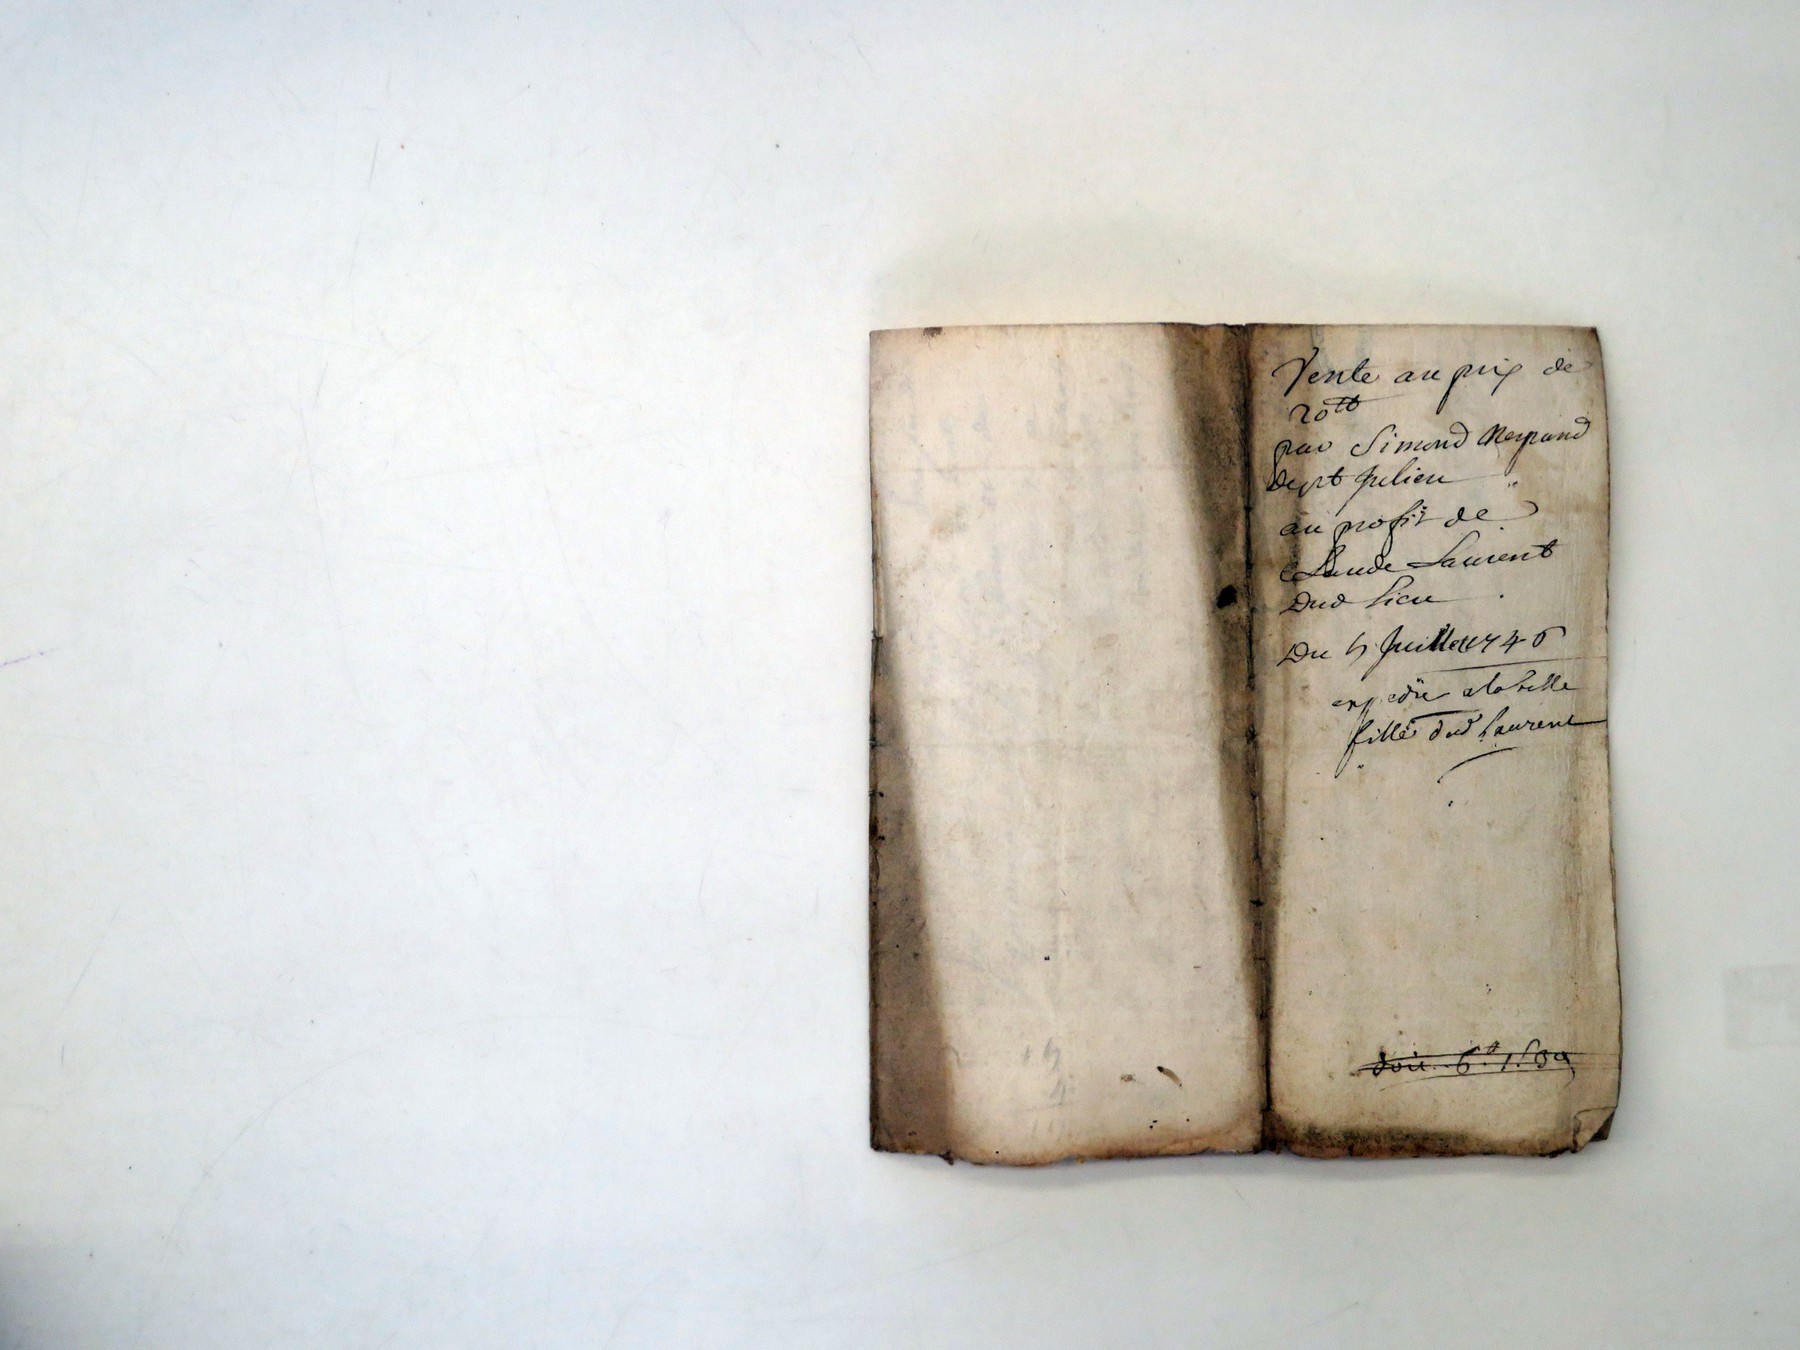 Vente au prix de
20tt
par Simond
de st Julien
au profit de
Claude Laurent
Dud lieu
Du 5 Juillet 1746
expedie a la
fille dud Laurent
doit 6
15
4